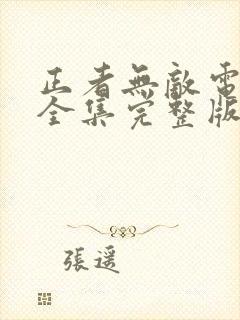 正者無敵電
全集完整版
張遥